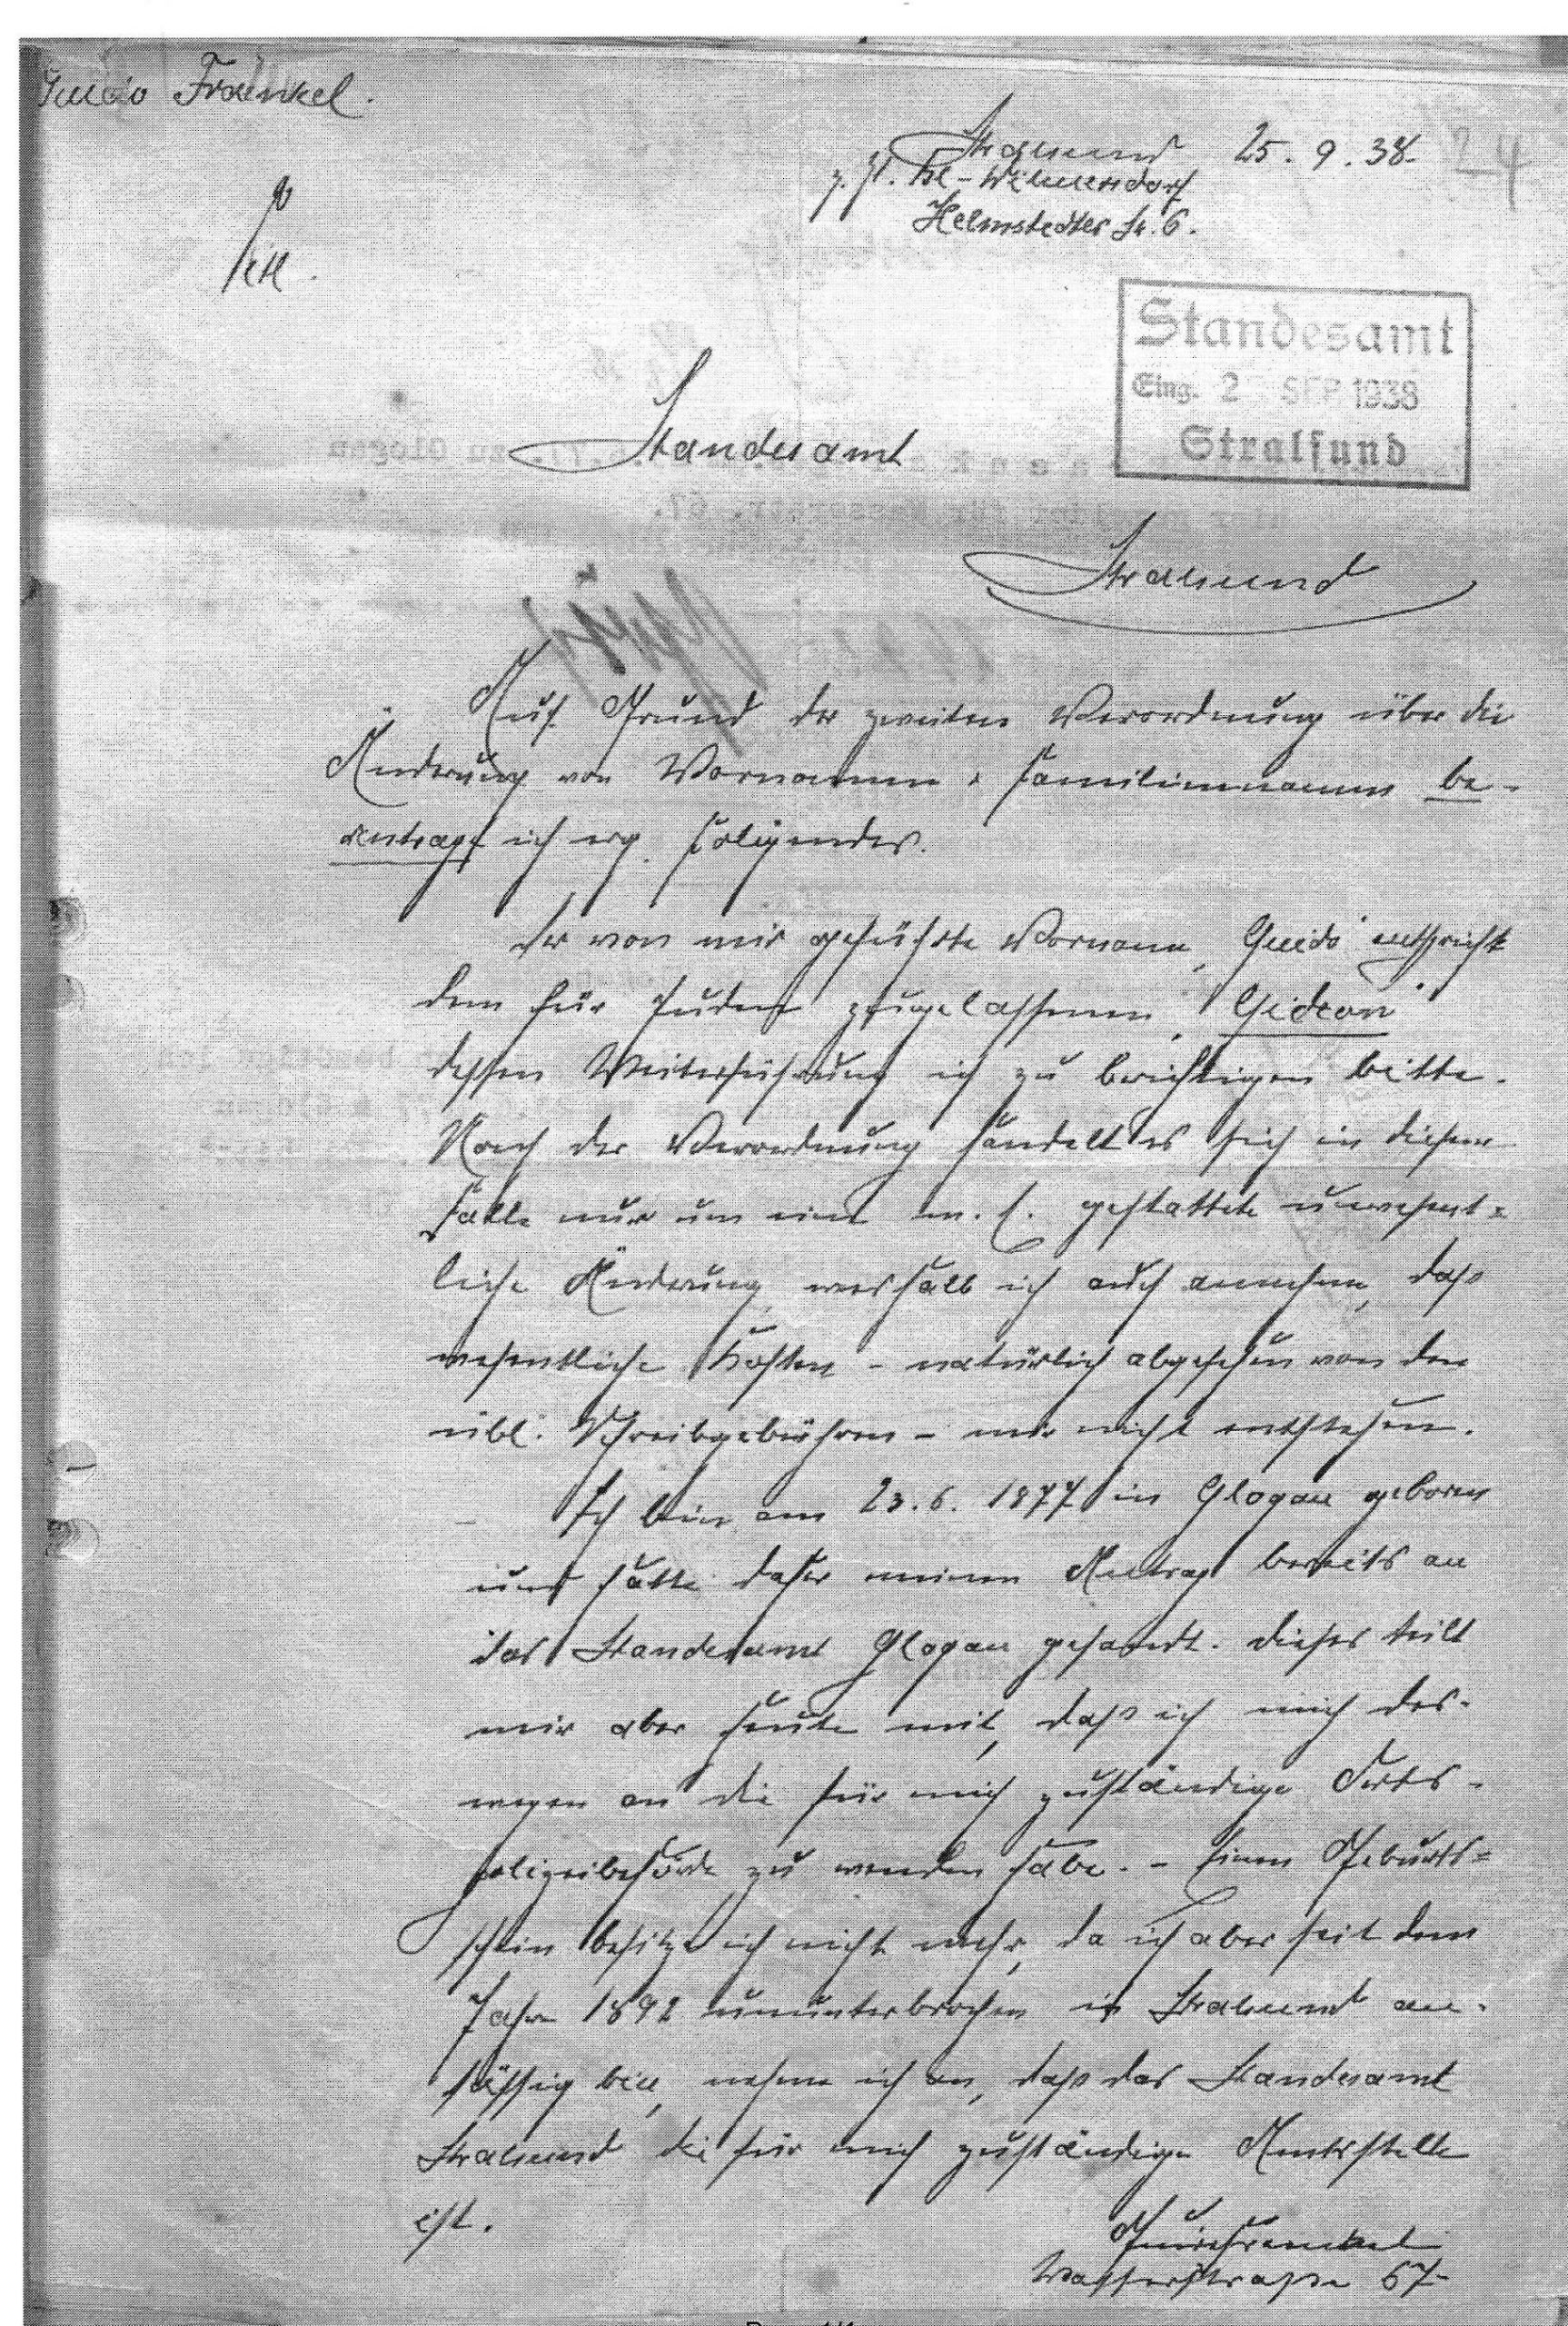 Guido Fraenkel.
Stralsund 25.9.38.
24
z. Zt. Bl-Wilmersdorf
Helmstedter Str. 6.
Standesamt
Eing. 2 SEP. 1938
Stralsund
Standesamt
Stralsund
Auf Grund der zweiten Verordnung über die
Änderung von Vornamen & Familiennamen be-
antrage ich erg. Folgendes.
Der von mir geführte Vorname „Guido" entspricht
dem für Juden zugelassenen „Gideon"
dessen Weiterführung ich zu berichtigen bitte.
Nach der Verordnung handelt es sich in diesem
Falle nur um eine m. E. gestattete unwesent=
liche Änderung, weshalb ich auch annehme, daß
wesentliche Kosten - natürlich abgesehen von den
übl. Schreibgebühren - mir nicht entstehen.
Ich bin am 23.6.1877 in Glogau geboren
und hatte daher meinen Antrag bereits an
das Standesamt Glogau gesandt. Dieses teilt
mir aber heute mit, daß ich mich des-
wegen an die für mich zuständige Orts-
polizeibehörde zu wenden habe. - Einen Geburts=
schein besitze ich nicht mehr, da ich aber seit dem
Jahre 1892 ununterbrochen in Stralsund an-
sässig bin, nehme ich an, daß das Standesamt
Stralsund die für mich zuständige Amtsstelle
ist.
Guido Fraenkel
Wasserstraße 67-